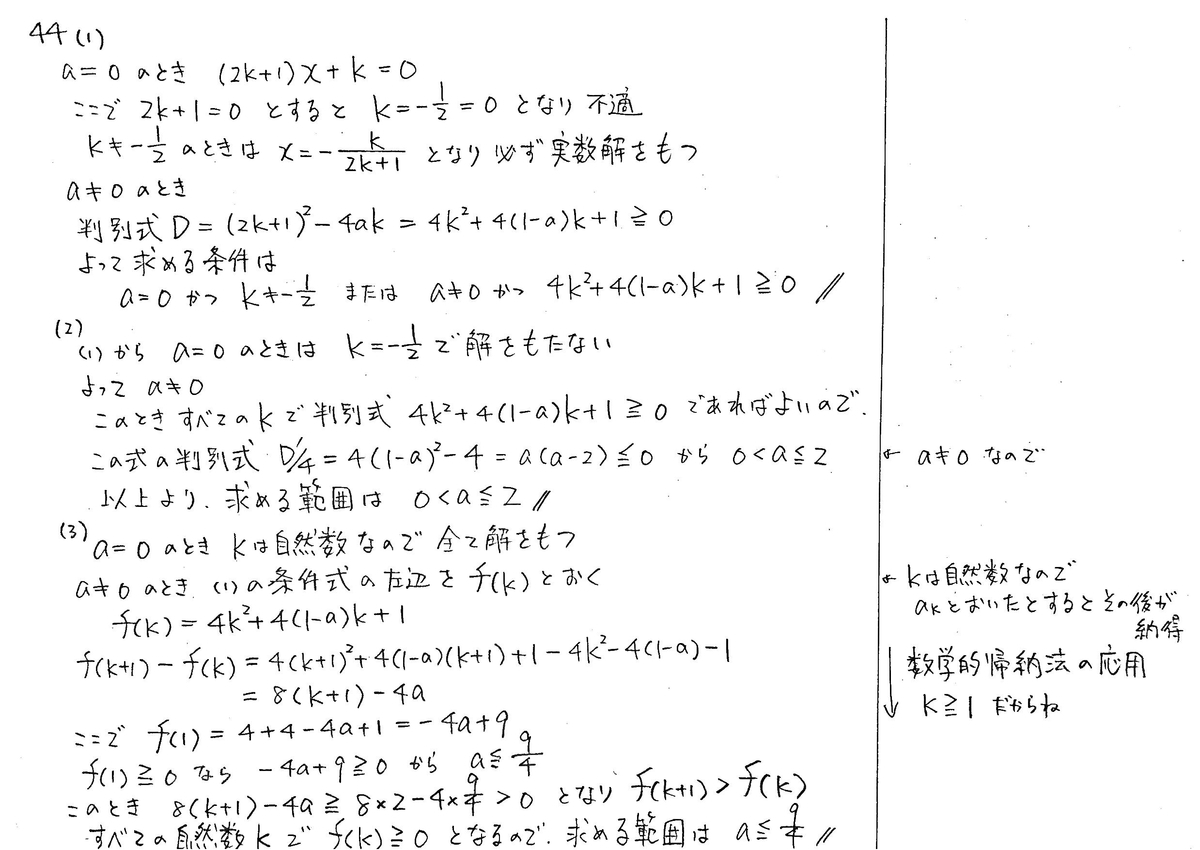 44 (1)
a=0 のとき (2k+1)x+k=0
ここで 2k+1=0 とすると k=-1/2=0 となり 不適
k≠-1/2 のときは x=-k/(2k+1) となり 必ず実数解をもつ
a≠0 のとき
判別式 D=(2k+1)²-4ak=4k²+4(1-a)k+1≧0
よって求める条件は
a=0 かつ k≠-1/2 または a≠0 かつ 4k²+4(1-a)k+1≧0 //
(2)
(1)から a=0 のときは k=-1/2 で解をもたない
よって a≠0
このとき すべてのkで判別式 4k²+4(1-a)k+1≧0 であればよいので.
この式の判別式 D/4=4(1-a)²-4=a(a-2)≦0 から 0<a≦2
← a≠0 なので
以上より. 求める範囲は 0<a≦2 //
(3)
a=0 のとき kは自然数なので 全て解をもつ
a≠0 のとき (1)の条件式の左辺を f(k)とおく
← kは自然数なので
akとおいたとするとその後が
納得
f(k)=4k²+4(1-a)k+1
f(k+1)-f(k)=4(k+1)²+4(1-a)(k+1)+1-4k²-4(1-a)-1
↓ 数学的帰納法の応用
=8(k+1)-4a
k≧1 だからね
ここで f(1)=4+4-4a+1=-4a+9
f(1)≧0 なら -4a+9≧0 から a≦9/4
このとき 8(k+1)-4a≧8×2-4×9/4>0 となり f(k+1)>f(k)
すべての自然数kで f(k)≧0 となるので. 求める範囲は a≦9/4 //